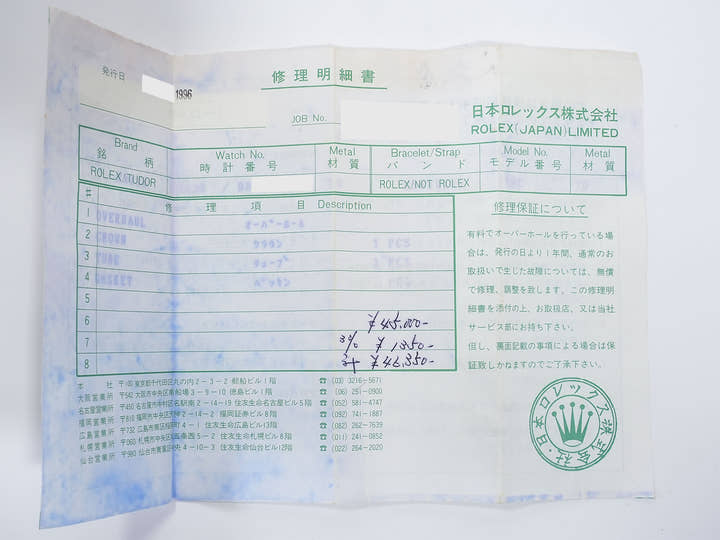 修理明細書
発行日 1996
JOB No.
日本ロレックス株式会社
ROLEX(JAPAN)LIMITED
Brand Watch No. Metal Bracelet/Strap Model No. Metal
銘柄 時計番号 材質 バンド モデル番号 材質
ROLEX/TUDOR ROLEX/NOT ROLEX
# 修理項目 Description
1 OVERHAUL オーバーホール
2 CROWN クラウン 1 PCS
3 TUBE チューブ PCS
4 GASKET パッキン
5
6 ¥45,000-
7 3% ¥1350-
8 計 ¥46,350-
修理保証について
有料でオーバーホールを行っている場
合は、発行の日より1年間、通常のお
取扱いで生じた故障については、無償
で修理、調整を致します。この修理明
細書を添付の上、お取扱店、又は当社
サービス部にお持ち下さい。
但し、裏面記載の事項による場合は保
証致しかねますのでご了承下さい。
本社 〒100 東京都千代田区丸の内2-3-2 郵船ビル1階 ☎ (03) 3216-5671
大阪営業所 〒542 大阪市中央区南船場3-9-10 徳島ビル1階 ☎ (06) 251-0900
名古屋営業所 〒450 名古屋市中村区名駅南2-14-19 住友生命名古屋ビル5階 ☎ (052) 581-4747
福岡営業所 〒810 福岡市中央区天神2-14-2 福岡証券ビル8階 ☎ (092) 741-1887
広島営業所 〒732 広島市 4-1 住友生命広島ビル13階 ☎ (082) 262-7639
札幌営業所 〒060 札幌市中央区 条西5-2 住友生命札幌ビル8階 ☎ (011) 241-0852
仙台営業所 〒980 仙台市青葉区中央4-10-3 住友生命仙台ビル12階 ☎ (022) 264-2020
日本ロレックス株式会社